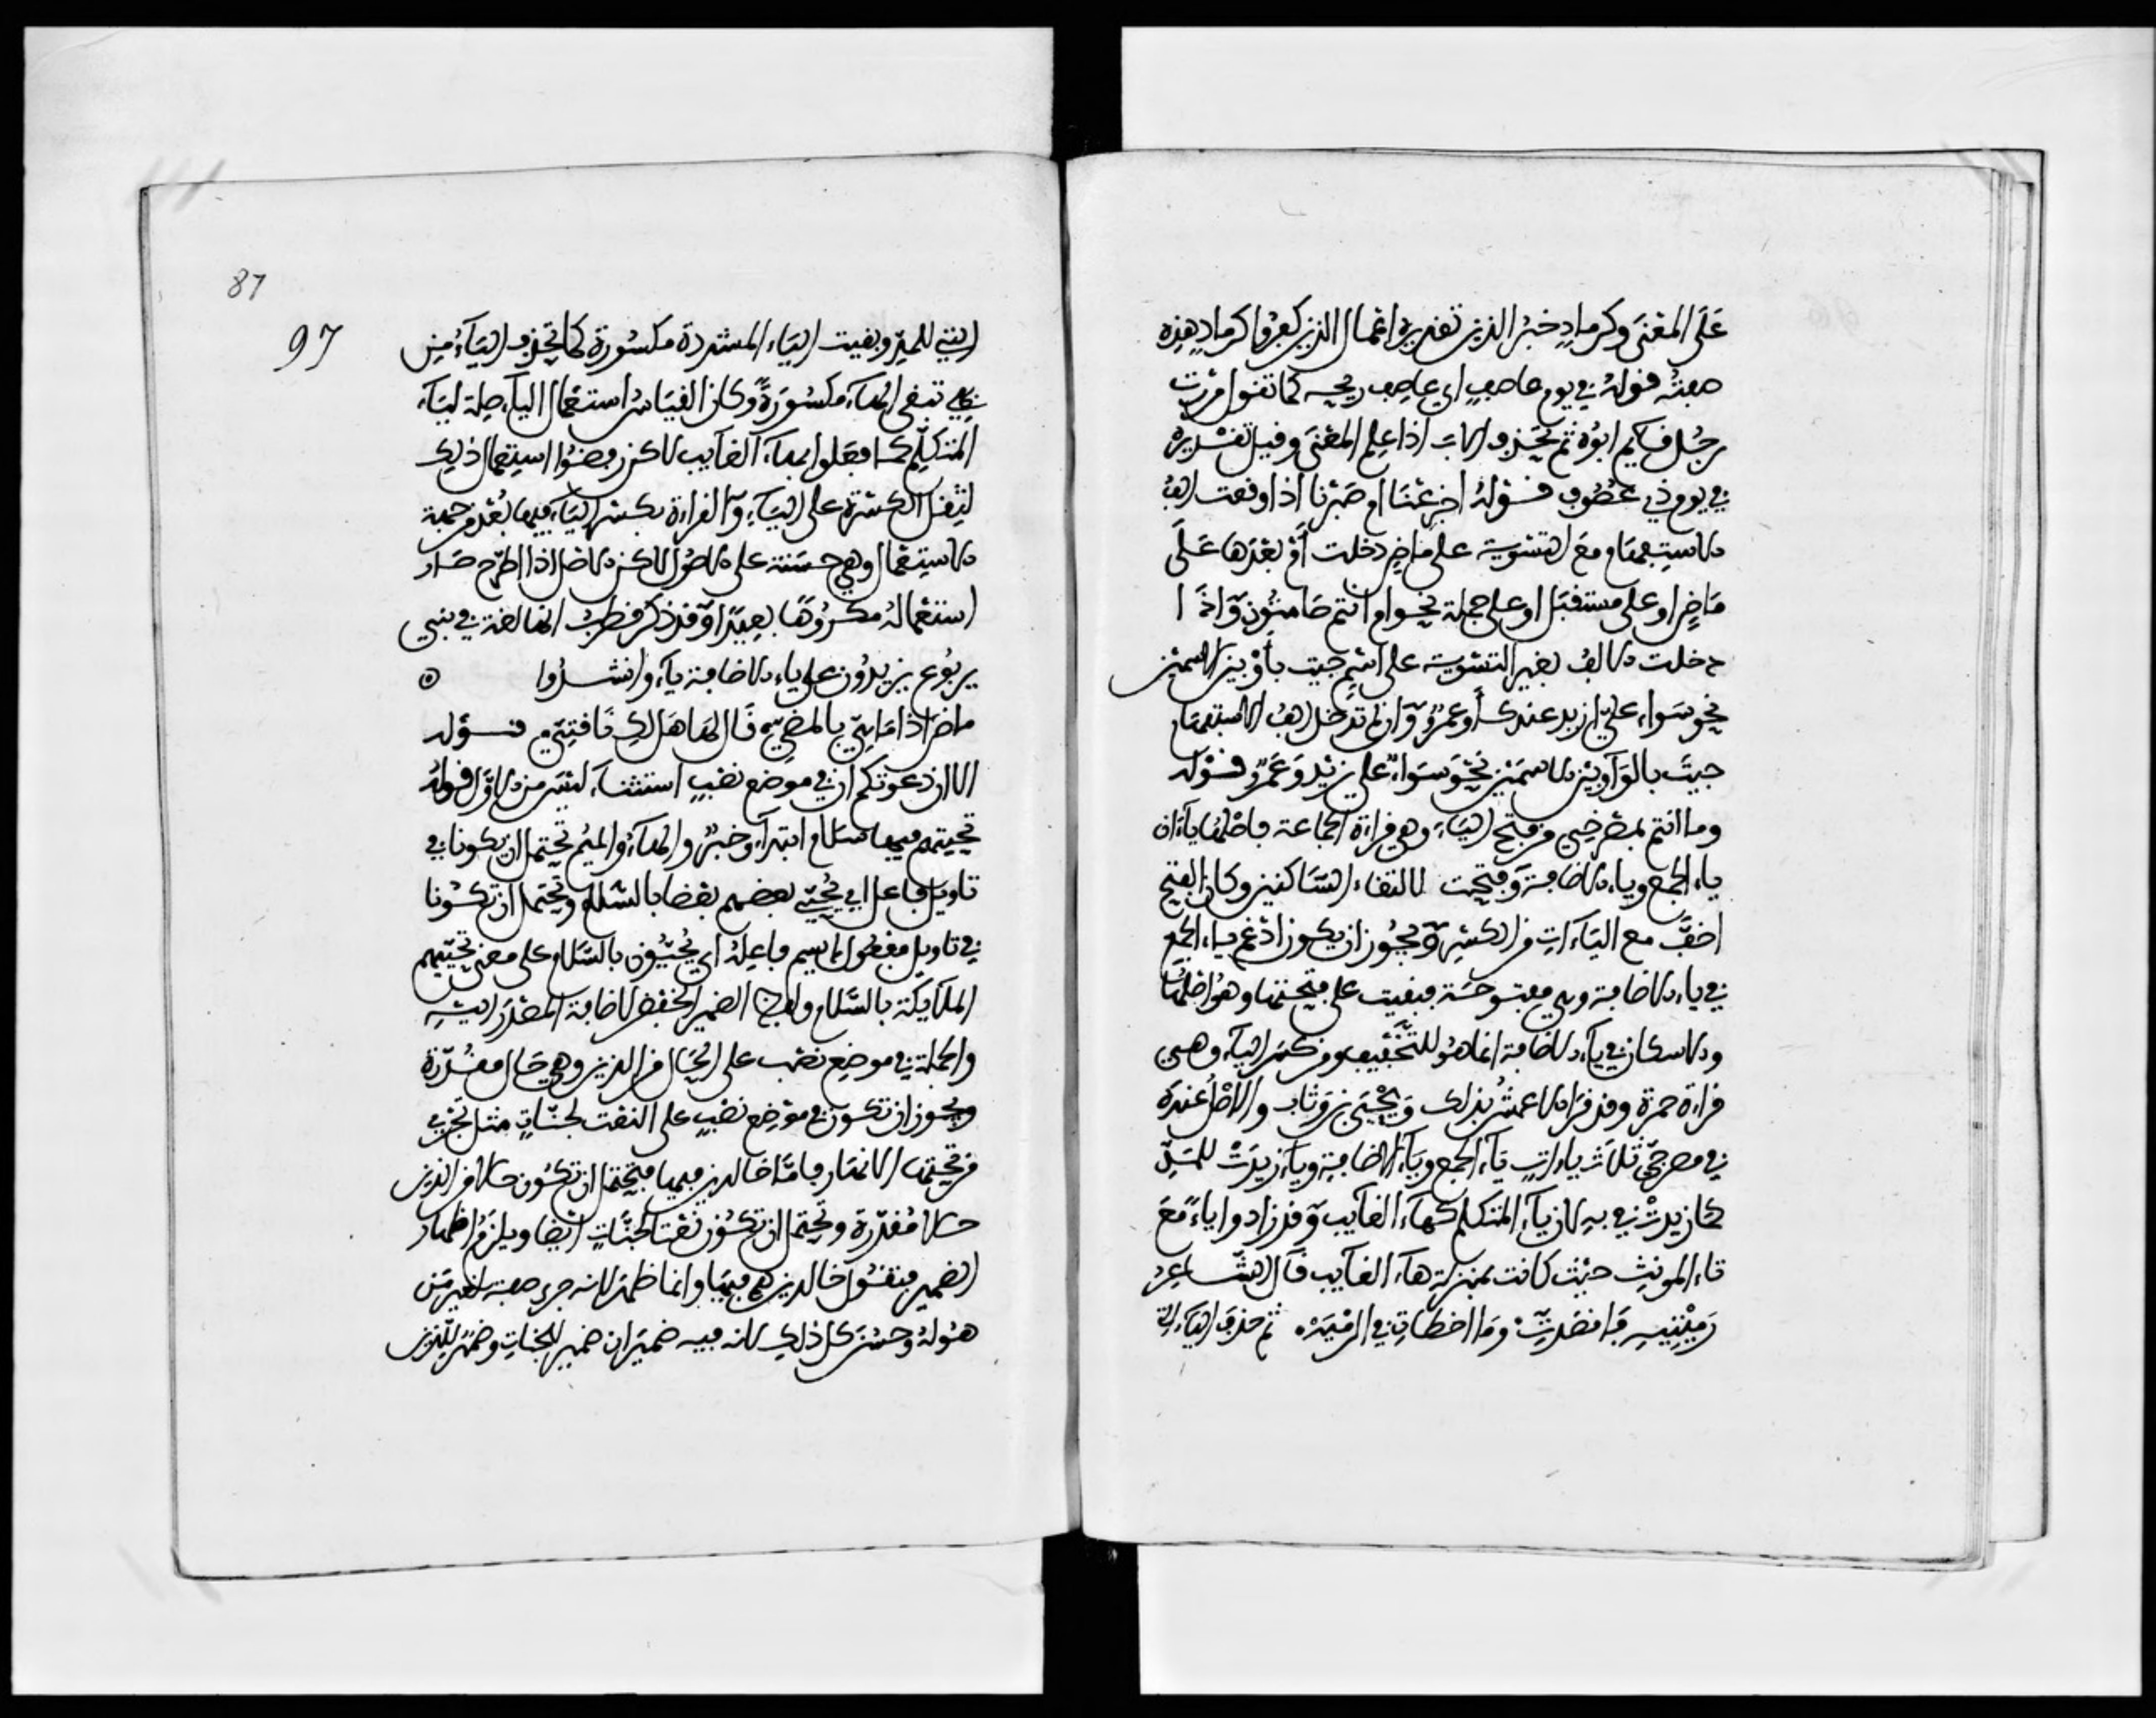 عَلَى المَعْنَى وكرمادٍ خبرُ الذين تقديره اعْمال الذين كفروا كرمادٍ هذِه
صفتُه قوله في يوم عاصفٍ اي عاصف ريحه كما تقول مررت
برجُل قايم ابوُه ثم تحْذف الهاء اذا علم المعْنَى وقيل تقْديره
في يوم ذي عصُوف قوْلهُ أجزِعْنَا ام صَبرْنا اذا وقعت الفُ
الاستفهام مع التسْوية على ماضٍ دخلت أَوْ بعْدَها عَلَى
مَاضٍ او على مستقبَل او على جملة نحو ام انتم صَامتُون وَاذَا
دخلت الالفُ بغير التسْوية على اسْمٍ جيت بأَوْ بيْن الاسمين
نحو سَواء عليّ ازيد عندك أَو عمرٌو وَان لم تدخل الفُ الاستفهام
جيتَ بالوَاو بيْن الاسمَيْن نحْو سَوَاءٌ عليّ زيْد وَعمْرٌو قوْله
وما انتم بمصْرخيّ من فتح الياء وهي قراءة الجماعة فاصْلها ياءان
ياء الجمع وياء الاضافة وفتحت لالتقاء السّاكنين وكان الفتح
اخفَّ مع اليَاءات من الكسْر وَيجُوز ان يكون ادغم ياء الجمع
في ياء الاضافة وهي مفتوحَة فبقيت على فتحتها وهو اصْلها
والاسكان في ياء الاضافة انما هُو للتّخْفيف ومن كسَر الياء وهي
قراءة حمزة وقد قرا الاعمشُ بذلك وَيحْيَى بن وَثاب والاصْلُ عندَه
في مصرخيّ ثلاث ياءاتٍ يَاء الجمع ويَاء الاضافة وياء زيدَتْ للمَدّ
كما زيدتْ في بهِ لان ياء المتكلم كهاء الغايب وَقد زادوا ياءً مَعَ
تاء المونث حيْث كانت بمنزلة هاء الغايب قال الشّاعِرُ
رَمَيْتيهِ فَاقصَدتِ وَما اخطاتِ في الرمْيَهْ ثم حذفَ الياء التي
87
97
التي للمد وبقيت الياء المشددة مكسُورَة كما تحْذف الياء من
بهي تبقى الهاء مكسُورَةً وكان القيَاسُ استعْمال الياء صلة لياء
المتكلم كما فعَلوا بهاء الغايب لاكن رفضُوا استعمال ذلك
لثِقل الكسْرة على الياءِ وَالقراءة بكسْر الياء فيها بُعْد من جهة
الاستِعْمال وهي حسَنة على الاصُول لاكن الاصْل اذا اطّرح صَار
استعْمالهُ مكرُوهًا بعِيدًا وَقد ذكر قطربُ انها لغة في بني
يربُوع يزيدُون على ياء الاضافة ياء وانشدُوا ه
ماضٍ اذا مَا همّ بالمضيّ قَال لها هَل لك يَا تا فيّ قوْله
الا ان دعوتكم ان في موضع نصْبٍ استثناء ليْسَ من الاوّل قولهُ
تحيتهم فيها سَلام ابتداءٌ وخبرٌ والهاءُ والميمُ تحتمل ان يكونا في
تاويل فاعل اي يُحيّي بعضهم بعْضا بالسّلام وتحتمل ان تكُونا
في تاويل مفعُول لم يسم فاعِلهُ اي يُحَيَّوْن بالسّلام على معنى تحييّهم
الملايكة بالسَّلام ولفظ الضمير الخفض لاضافة المصْدَر اليْهِ
والجملة في موضِع نصْب على الحَال من الذين وهي حَال مقدّرَة
ويجوز ان تكون في موْضِع نصْبٍ على النعْت لجنّاتٍ مثل تجْري
من تحتها الانهار فامَّا خالدين فيها فيحتمل ان تكُون حالا من الذين
حالا مُقدّرة وتحتمل ان تكُون نعْتا لجنّاتٍ ايضا ويلزَمُ اظهار
الضمير فتقُول خالدين هُم فيهَا وانما ظهَر لانه جرى صفة لغير مَن
هُوَ لهُ وحسُن كل ذلك لانه فيه ضميرَان ضمير للجناتِ وضميرٌ للذين